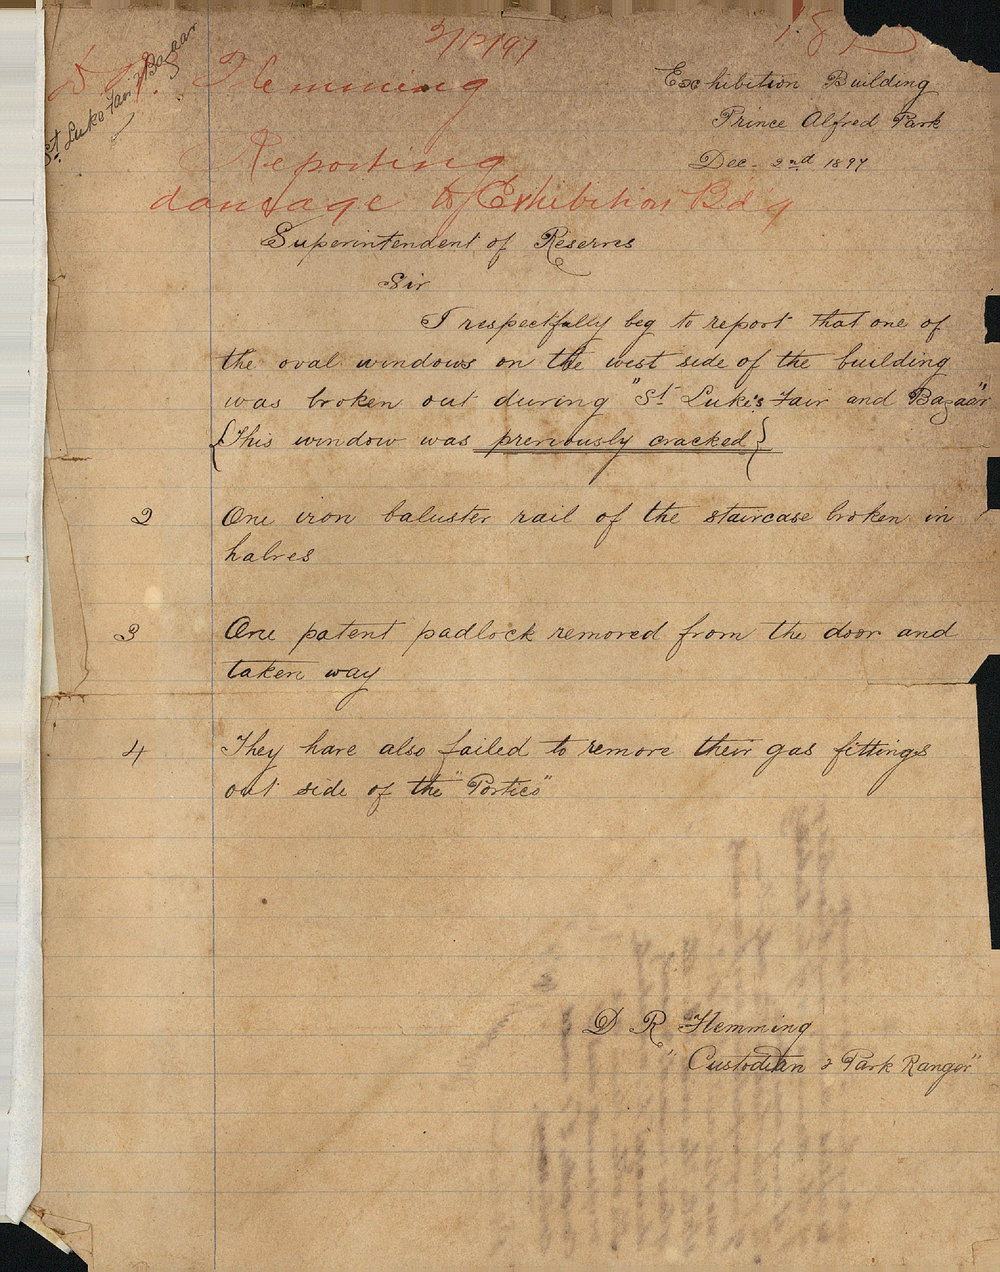 St Luke Fair & Bazaar
2/12/97
D R Hemming
Reporting
damage to Exhibition Bdg
Exhibition Building
Prince Alfred Park
Dec- 2nd 1897
Superintendent of Reserves
Sir
I respectfully beg to report that one of
the oval windows on the west side of the building
was broken out during "St Luke's Fair and Bazaar"
{This window was previously cracked}
2 One iron baluster rail of the staircase broken in
halves
3 One patent padlock removed from the door and
taken way
4 They have also failed to remove their gas fittings
out side of the "Portico"
D R Hemming
"Custodian & Park Ranger"